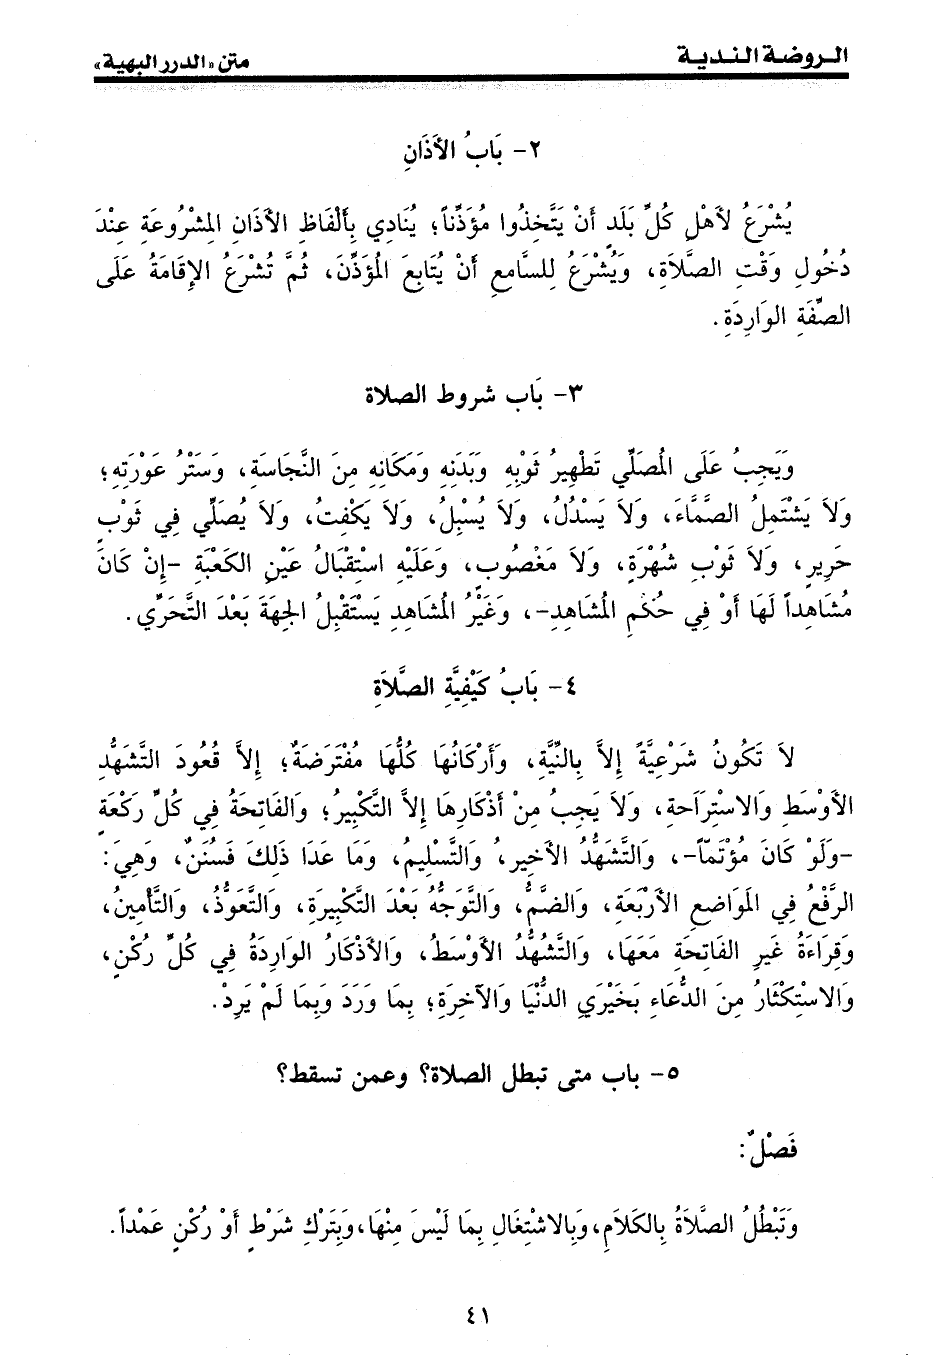 الروضة الندية
متن «الدرر البهية»
٢- بَابُ الأَذَانِ
يُشْرَعُ لأَهْلِ كُلِّ بَلَدٍ أَنْ يَتَّخِذُوا مُؤَذِّناً؛ يُنَادِي بِأَلْفَاظِ الأَذَانِ المَشْرُوعَةِ عِنْدَ
دُخُولِ وَقْتِ الصَّلَاةِ، وَيُشْرَعُ لِلسَّامِعِ أَنْ يُتَابِعَ المُؤَذِّنَ، ثُمَّ تُشْرَعُ الإِقَامَةُ عَلَى
الصِّفَةِ الوَارِدَةِ.
٣- بَاب شروط الصلاة
وَيَجِبُ عَلَى المُصَلِّي تَطْهِيرُ ثَوْبِهِ وَبَدَنِهِ وَمَكَانِهِ مِنَ النَّجَاسَةِ، وَسَتْرُ عَوْرَتِهِ؛
وَلاَ يَشْتَمِلُ الصَّمَّاءَ، وَلاَ يَسْدُلُ، وَلاَ يُسْبِلُ، وَلاَ يَكْفِتُ، وَلاَ يُصَلِّي فِي ثَوْبِ
حَرِيرٍ، وَلاَ ثَوْبِ شُهْرَةٍ، وَلاَ مَغْصُوبٍ، وَعَلَيْهِ اسْتِقْبَالُ عَيْنِ الكَعْبَةِ -إِنْ كَانَ
مُشَاهِداً لَهَا أَوْ فِي حُكْمِ المُشَاهِدِ-، وَغَيْرُ المُشَاهِدِ يَسْتَقْبِلُ الجِهَةَ بَعْدَ التَّحَرِّي.
٤- بَابُ كَيْفِيَّةِ الصَّلَاةِ
لاَ تَكُونُ شَرْعِيَّةً إِلاَّ بِالنِّيَّةِ، وَأَرْكَانُهَا كُلُّهَا مُفْتَرَضَةٌ؛ إِلاَّ قُعُودَ التَّشَهُّدِ
الأَوْسَطِ وَالاسْتِرَاحَةِ، وَلاَ يَجِبُ مِنْ أَذْكَارِهَا إِلاَّ التَّكْبِيرُ؛ وَالفَاتِحَةُ فِي كُلِّ رَكْعَةٍ
-وَلَوْ كَانَ مُؤْتَمّاً-، وَالتَّشَهُّدُ الأَخِيرُ، وَالتَّسْلِيمُ، وَمَا عَدَا ذَلِكَ فَسُنَنٌ، وَهِيَ:
الرَّفْعُ فِي المَوَاضِعِ الأَرْبَعَةِ، وَالضَّمُّ، وَالتَّوَجُّهُ بَعْدَ التَّكْبِيرَةِ، وَالتَّعَوُّذُ، وَالتَّأْمِينُ،
وَقِرَاءَةُ غَيْرِ الفَاتِحَةِ مَعَهَا، وَالتَّشَهُّدُ الأَوْسَطُ، وَالأَذْكَارُ الوَارِدَةُ فِي كُلِّ رُكْنٍ،
وَالاسْتِكْثَارُ مِنَ الدُّعَاءِ بَخَيْرَيِ الدُّنْيَا وَالآخِرَةِ؛ بِمَا وَرَدَ وَبِمَا لَمْ يَرِدْ.
٥- باب متى تبطل الصلاة؟ وعمن تسقط؟
فَصْلٌ:
وَتَبْطُلُ الصَّلَاةُ بِالكَلاَمِ، وَبِالاشْتِغَالِ بِمَا لَيْسَ مِنْهَا، وَبِتَرْكِ شَرْطٍ أَوْ رُكْنٍ عَمْداً.
٤١